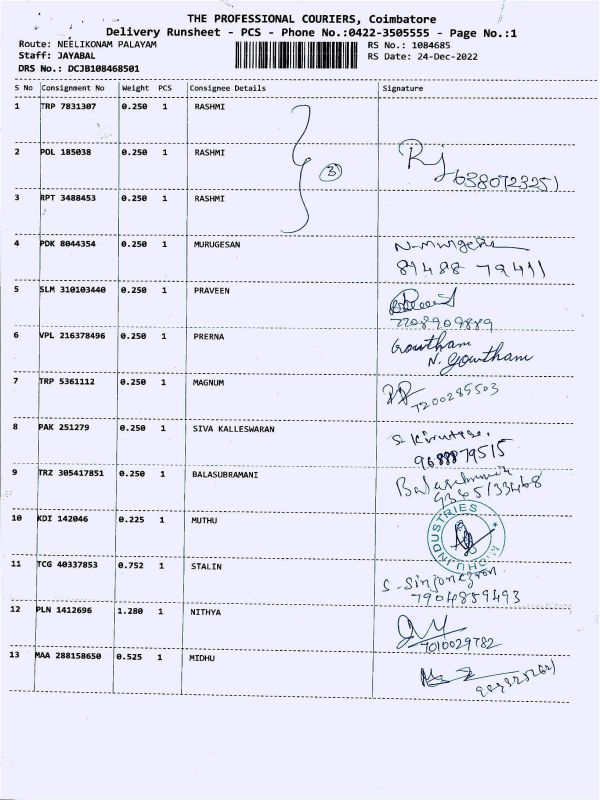 THE PROFESSIONAL COURIERS, Coimbatore
Delivery Runsheet - PCS - Phone No.:0422-3505555 - Page No.:1
Route: NEELIKONAM PALAYAM
RS No.: 1084685
Staff: JAYABAL
RS Date: 24-Dec-2022
DRS No.: DCJB108468501
S No Consignment No Weight PCS Consignee Details Signature
1 TRP 7831307 0.250 1 RASHMI
2 POL 185038 0.250 1 RASHMI
3
6380723251
3 RPT 3488453 0.250 1 RASHMI
4 PDK 8044354 0.250 1 MURUGESAN
81488 79411
5 SLM 310103440 0.250 1 PRAVEEN
7708909889
6 VPL 216378496 0.250 1 PRERNA Gowtham
N. Gowtham
7 TRP 5361112 0.250 1 MAGNUM
7200285503
8 PAK 251279 0.250 1 SIVA KALLESWARAN
9688879515
9 TRZ 305417851 0.250 1 BALASUBRAMANI
9365133468
10 KDI 142046 0.225 1 MUTHU
INDUSTRIES
11 TCG 40337853 0.752 1 STALIN
7904859493
12 PLN 1412696 1.280 1 NITHYA
7010029782
13 MAA 288158650 0.525 1 MIDHU